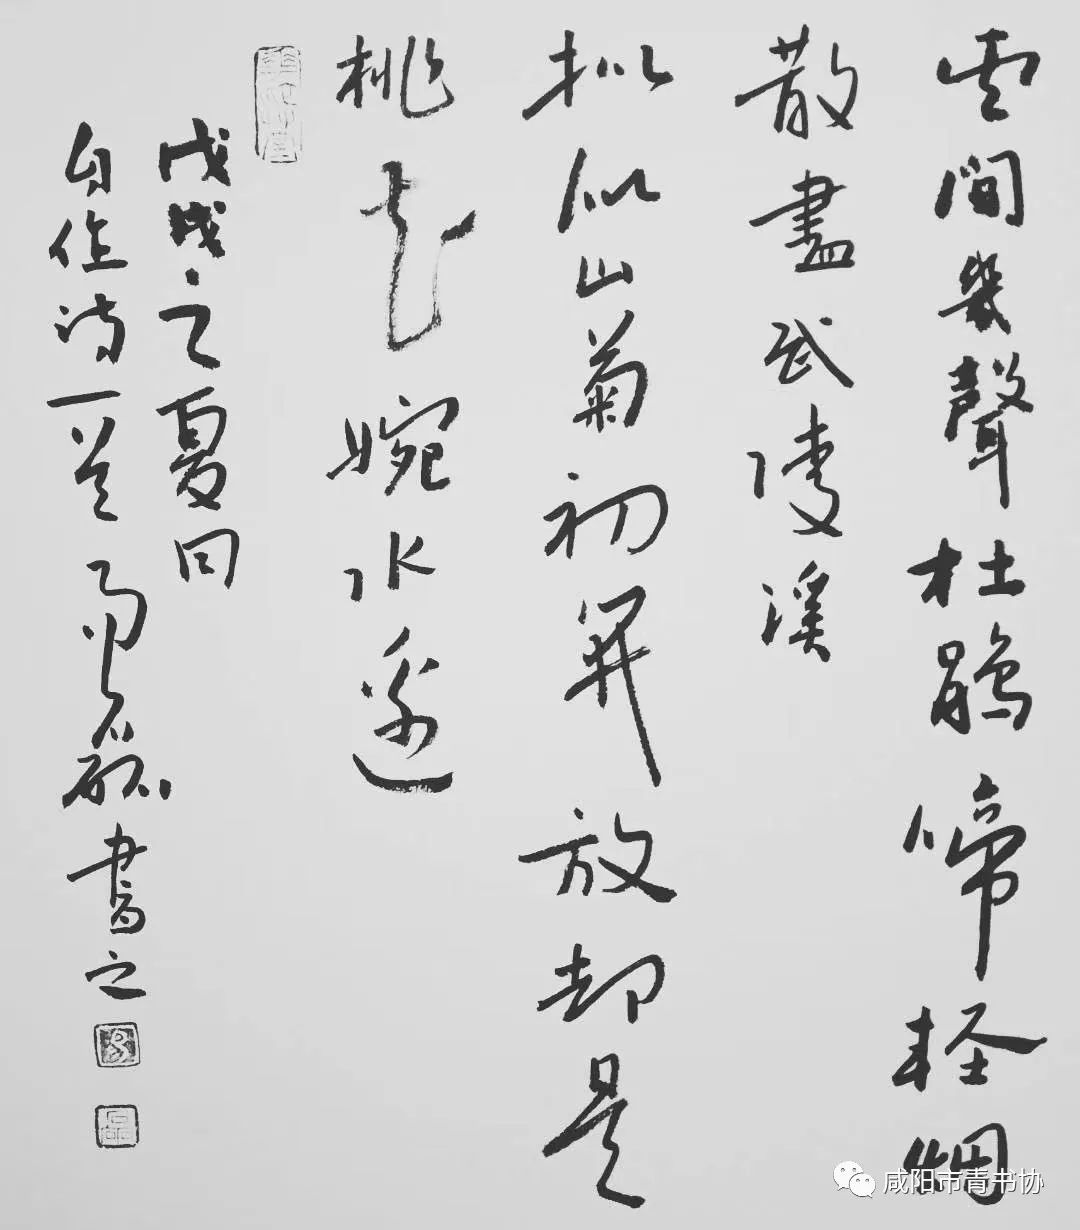 雲間幾聲杜鵑啼輕烟
散盡武陵溪
拟似山菊初開放却是
桃花婉水邊
戊戌之夏日
自作詩一首 磊書之
咸阳市青书协